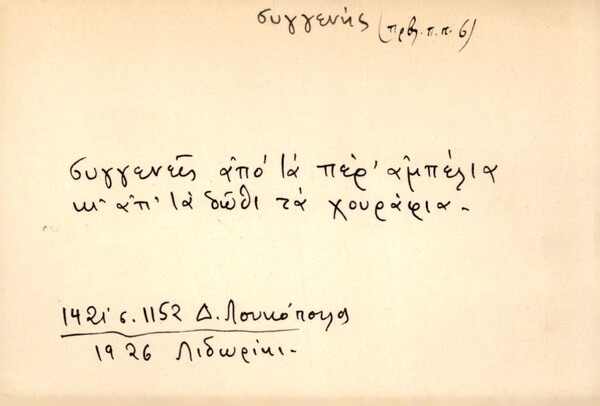 συγγενής (πρβ. π.π. 6)
συγγενεῖς ἀπό τά πέρ' ἀμπέλια
κι' ἀπ' τά δῶθι τά χουράφια.
1421 σ. 1152 Δ. Λουκόπουλος
1926 Λιδωρίκι.